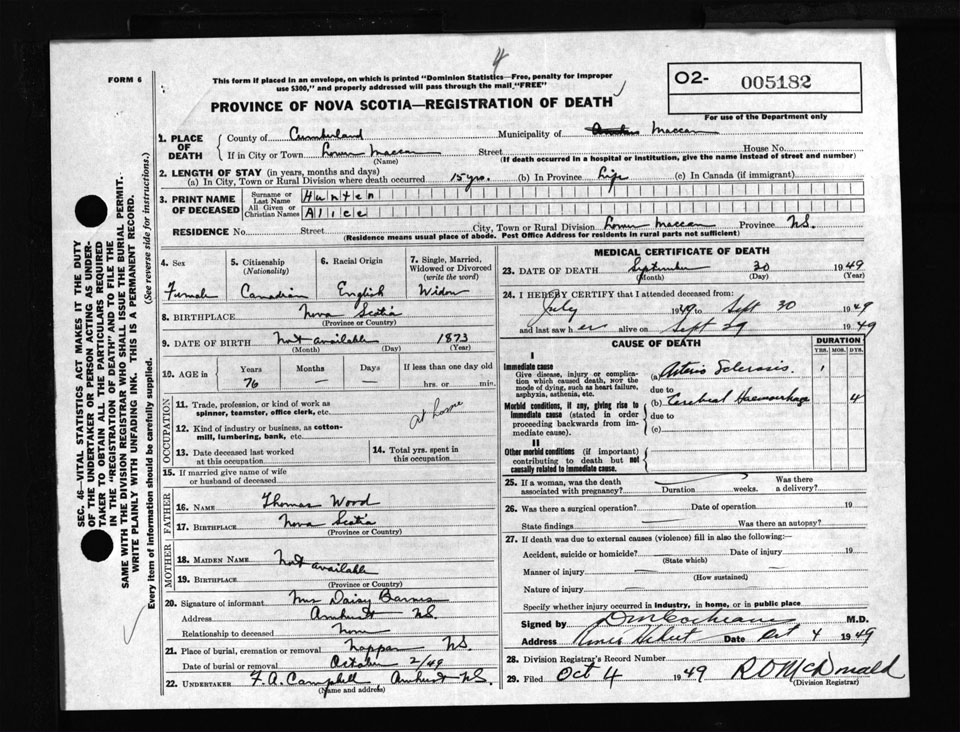 4
FORM 6
This form if placed in an envelope, on which is printed "Dominion Statistics—Free, penalty for improper
use $300," and properly addressed will pass through the mail "FREE"
O2- 005182
For use of the Department only
PROVINCE OF NOVA SCOTIA—REGISTRATION OF DEATH
1. PLACE OF DEATH
County of Cumberland Municipality of Maccan
If in City or Town Lower Maccan Street House No.
(Name) (If death occurred in a hospital or institution, give the name instead of street and number)
2. LENGTH OF STAY (in years, months and days)
(a) In City, Town or Rural Division where death occurred 15 yrs. (b) In Province Life (c) In Canada (if immigrant)
3. PRINT NAME OF DECEASED
Surname or Last Name Hunten
All Given or Christian Names Alice
RESIDENCE No. Street City, Town or Rural Division Lower Maccan Province N.S.
(Residence means usual place of abode. Post Office Address for residents in rural parts not sufficient)
4. Sex Female
5. Citizenship (Nationality) Canadian
6. Racial Origin English
7. Single, Married, Widowed or Divorced (write the word) Widow
8. BIRTHPLACE Nova Scotia
(Province or Country)
9. DATE OF BIRTH Not available 1873
(Month) (Day) (Year)
10. AGE in Years 76 Months — Days — If less than one day old hrs. or min.
OCCUPATION
11. Trade, profession, or kind of work as spinner, teamster, office clerk, etc. at home
12. Kind of industry or business, as cotton-mill, lumbering, bank, etc.
13. Date deceased last worked at this occupation
14. Total yrs. spent in this occupation
15. If married give name of wife or husband of deceased
FATHER
16. Name Thomas Wood
17. Birthplace Nova Scotia
(Province or Country)
MOTHER
18. Maiden Name Not available
19. Birthplace
(Province or Country)
20. Signature of informant Mrs Daisy Barnes
Address Amherst N.S.
Relationship to deceased None
21. Place of burial, cremation or removal Nappan N.S.
Date of burial or removal October 2/49
22. Undertaker F. A. Campbell Amherst N.S.
(Name and address)
MEDICAL CERTIFICATE OF DEATH
23. DATE OF DEATH September 30 1949
(Month) (Day)
24. I HEREBY CERTIFY that I attended deceased from:
July 1949 to Sept 30 1949
and last saw her alive on Sept 29 1949
CAUSE OF DEATH
DURATION
YRS. MOS. DYS.
I
Immediate cause
Give disease, injury or complication which caused death, NOT the mode of dying, such as heart failure, asphyxia, asthenia, etc.
(a) Arterio Sclerosis. 1
due to
Morbid conditions, if any, giving rise to immediate cause (stated in order proceeding backwards from immediate cause).
(b) Cerebral Haemorrhage 4
due to
(c)
II
Other morbid conditions (if important) contributing to death but not causally related to immediate cause.
25. If a woman, was the death associated with pregnancy? Duration weeks. Was there a delivery?
26. Was there a surgical operation? Date of operation 19
State findings Was there an autopsy?
27. If death was due to external causes (violence) fill in also the following:—
Accident, suicide or homicide? Date of injury 19
(State which)
Manner of injury
(How sustained)
Nature of injury
Specify whether injury occurred in industry, in home, or in public place
Signed by Cochrane M.D.
Address Date Oct 4 1949
28. Division Registrar's Record Number
29. Filed Oct 4 1949 R D McDonald
(Division Registrar)
SEC. 46—VITAL STATISTICS ACT MAKES IT THE DUTY
OF THE UNDERTAKER OR PERSON ACTING AS UNDER-
TAKER TO OBTAIN ALL THE PARTICULARS REQUIRED
IN THE "REGISTRATION OF DEATH" AND TO FILE THE
SAME WITH THE DIVISION REGISTRAR WHO SHALL ISSUE THE BURIAL PERMIT.
WRITE PLAINLY WITH UNFADING INK. THIS IS A PERMANENT RECORD.
Every item of information should be carefully supplied. (See reverse side for instructions.)